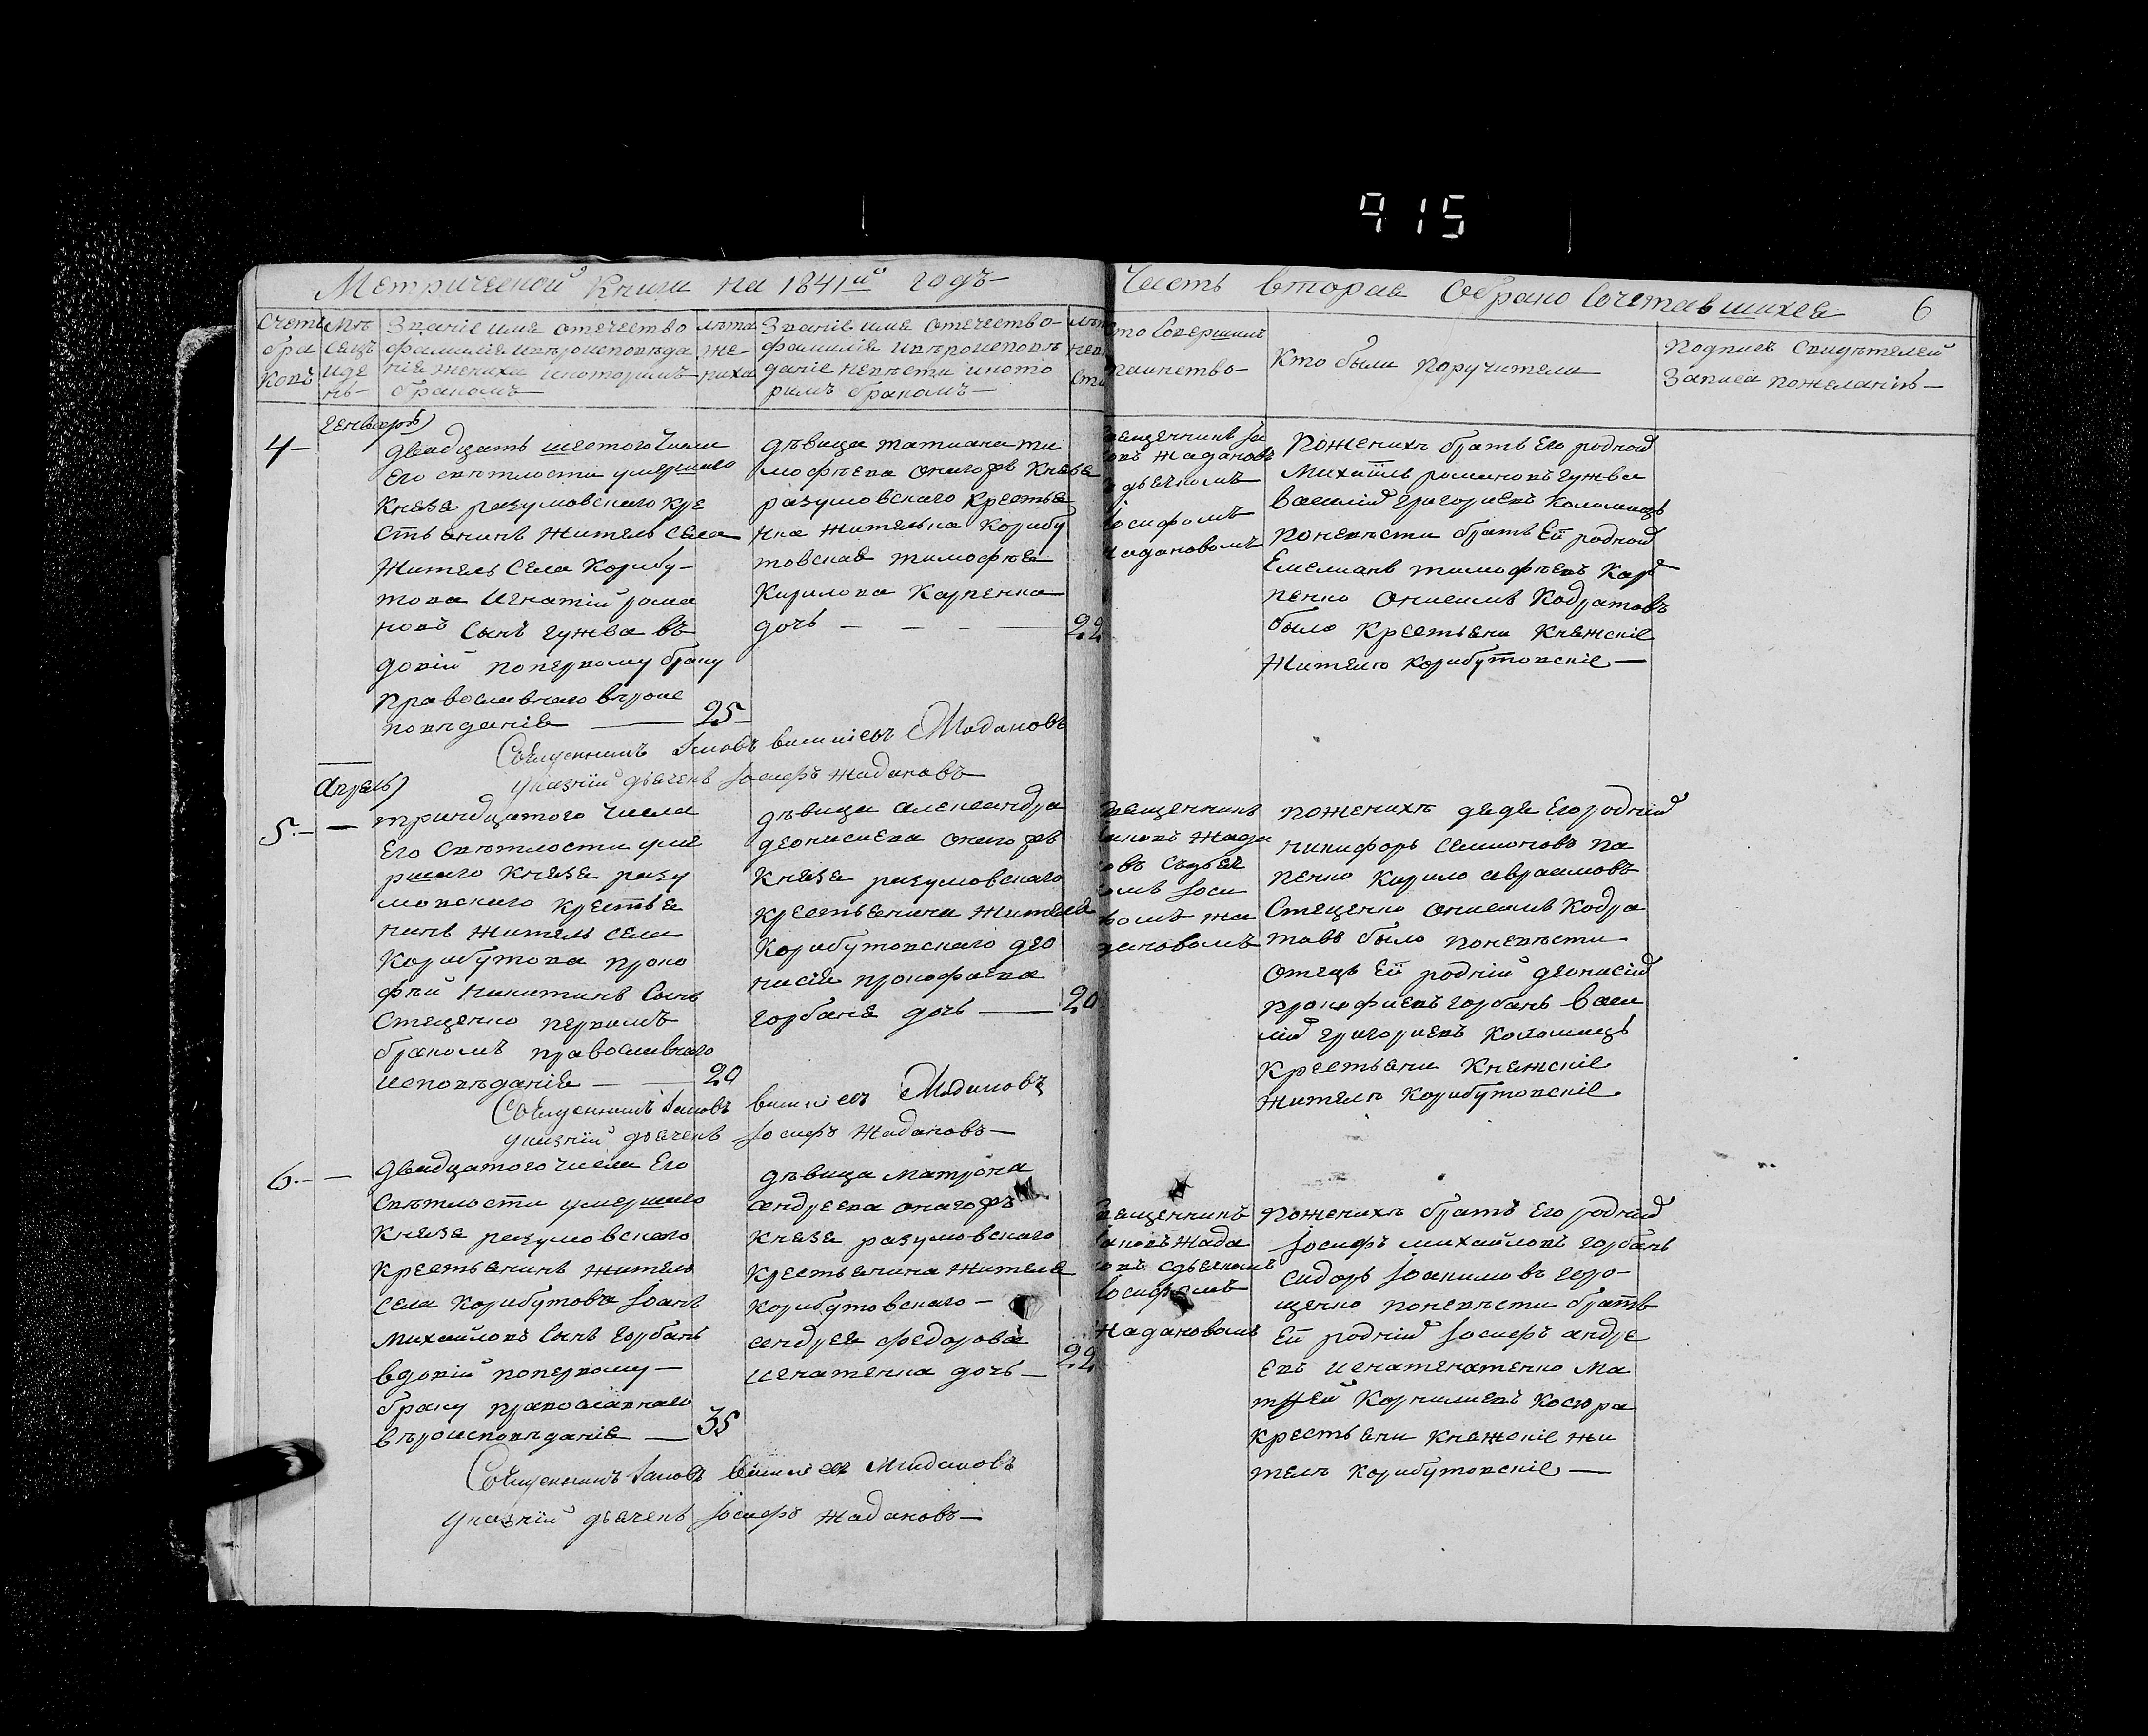 915
Метрической Книги на 1841й годъ
Часть вторая Обрако Сочетавшихся
6
Счетъ
бра
Ковъ
Мѣ
сецъ
иде
нь
Званіе имя отечество
фамилія ивѣроисповѣда
ніе жениха икоторимъ
бракомъ
лѣта
же
ниха
Званіе имя отечество
фамилія ивѣроисповѣ
даніе невѣсти икото
римъ бракомъ
то Совершилъ
таинство
Кто были поручители
Подпись Свидѣтелей
Записа пожеланію
4
Генварь
Двадцать шестого Числа
Его свѣтлости умершаго
Князя разумовскаго кре
стьянинъ житель села
житель Села Корибу
това Игнатій рома
новъ Сынъ гужва въ
довій поперкому браку
Православнаго вѣроис
повѣданія
25
дѣвица татиана ти
мофѣева онагожъ Князя
разумовскаго Крестья
нка жителька Корибу
товская тимофѣя
Кирилова Карпенка
дочь
22
вещенникъ Іа
ковъ Жадановъ
дьячкомъ
Іосифомъ
Жадановомъ
Поженихѣ братъ Его родной
Михаилъ романовъ гужва
Василій Григориевъ Коломиецъ
поневѣсти братъ Ей родной
Емелианъ тимофѣевъ Кар
пенко Онисимъ Кодратовъ
было Крестьяни Княжскіе
жителѣ Корибутовскіе
Священникъ Іаковъ василіевъ Жадановъ
указній дьячекъ Іосифъ Жадановъ
Апрель
5
тринадцатого числа
Его Свѣтлости уме
ршаго Князя разу
мовскаго Крестья
нинъ житель села
Корибутова проко
фѣй Никитинъ Сынъ
Стеценко первимъ
бракомъ православнаго
исповѣданія
20
дѣвица александра
деонисиева онагожъ
Князя разумовскаго
крестьянина жителя
Корибутовскаго део
нисія прокофиева
горбаня дочь
20
вещенникъ
аковъ Жада
овъ Съдьяч
омъ Іоси
фомъ Жа
дановомъ
поженихѣ дядя Егородній
никифоръ Семионовъ па
пенко Кирило авраамовъ
Стеценко онисимъ Кодра
товъ было поневѣсти
отецъ Ей родній деонисій
прокофиевъ горбань васи
лій григориевъ Коломиецъ
Крестьяни Княжскіе
жителѣ Корибутовскіе
Священникъ Іаковъ василіевъ Жадановъ
указній дьячекъ Іосифъ Жадановъ
6
Двадцатого числа Его
Свѣтлости умершаго
Князя разумовскаго
Крестьянинъ житель
села Корибутова Іоанъ
Михайловъ Сынъ горбань
вдовій поперкому
браку православнаго
вѣроисповѣданія
35
дѣвица матрона
андреева онагожъ
Князя разумовскаго
Крестьянина жителя
корибутовскаго
андрея федорова
игнатенка дочь
22
вещенникъ
аковъ Жада
овъ сдьячкомъ
Іосифомъ
Жадановомъ
Поженихѣ братъ Его родній
Іосифъ михайловъ горбань
сидоръ Іоакимовъ
щенко поневѣсти братъ
Ей родній Іосифъ андре
евъ игнатенатенко Ма
тфей Корнилиевъ Косюра
крестьяни Княжскіе жи
телѣ Корибутовскіе
Священникъ Іаковъ Василіевъ Жадановъ
указній дьячекъ Іосифъ Жадановъ